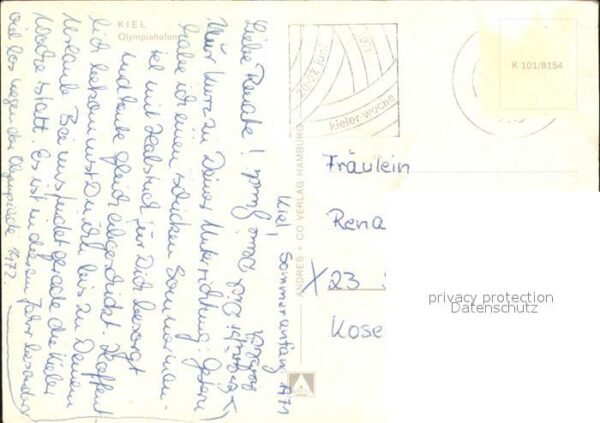 KIEL
Olympiahafen
Kiel, Sommeranfang 1971
Liebe Renate!
Nur kurz zu Deiner Unterrichtung: Gestern
habe ich einen schicken Sommerman-
tel mit Halstuch für Dich besorgt
und heute gleich abgeschickt. Hoffent-
lich bekommst Du ihn bis zu Deinem
Urlaub. Bei uns findet gerade die Kieler
Woche statt. Es ist in diesem Jahr besonders
viel los wegen der Olympiade 1972.
ANDRES + CO VERLAG HAMBURG
20.-27. Juni
kieler woche
K 101/8154
Fräulein
Rena
23
Kose
privacy protection
Datenschutz